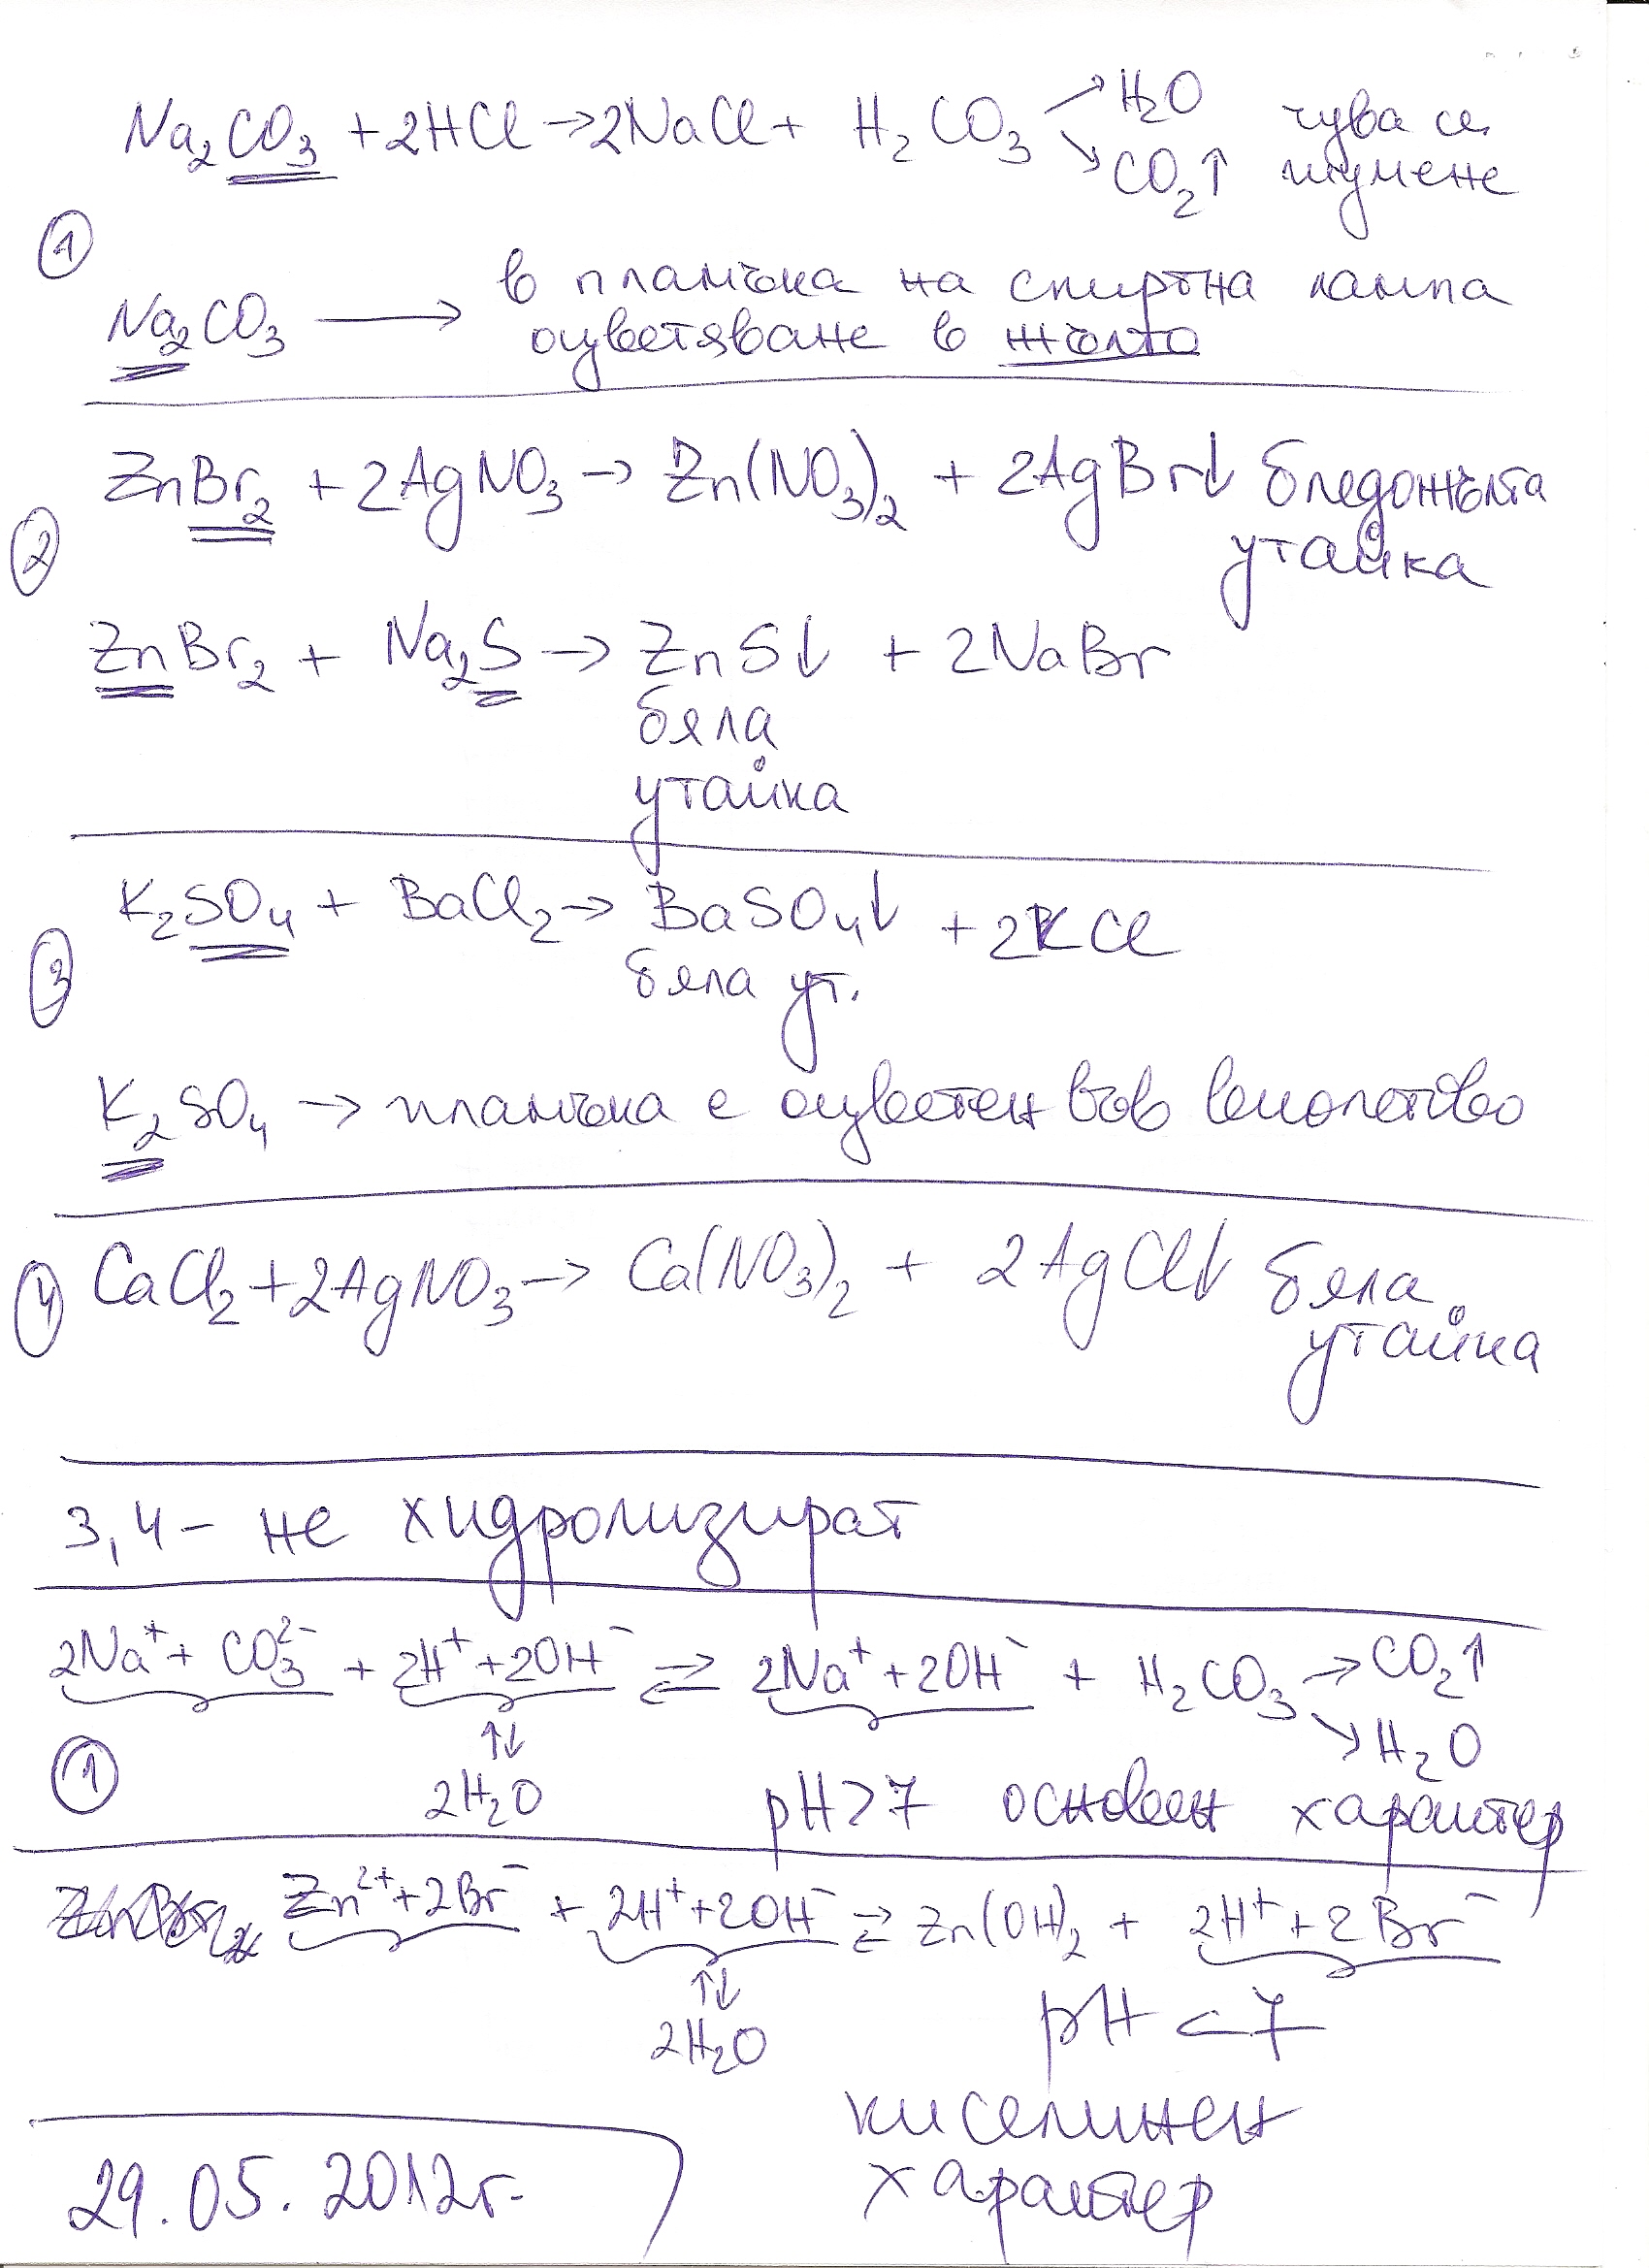 Na₂CO₃ + 2HCl → 2NaCl + H₂CO₃ ↗ H₂O чува се
↘ CO₂↑ шумене
①
в пламъка на спиртна лампа
Na₂CO₃ ⟶ оцветяване в жълто
ZnBr₂ + 2AgNO₃ → Zn(NO₃)₂ + 2AgBr↓ бледожълта
утайка
②
ZnBr₂ + Na₂S → ZnS↓ + 2NaBr
бяла
утайка
K₂SO₄ + BaCl₂ → BaSO₄↓ + 2KCl
бяла ут.
③
K₂SO₄ → пламъка е оцветен във виолетово
④ CaCl₂ + 2AgNO₃ → Ca(NO₃)₂ + 2AgCl↓ бяла
утайка
3,4 – не хидролизират
2Na⁺ + CO₃²⁻ + 2H⁺ + 2OH⁻ ⇄ 2Na⁺ + 2OH⁻ + H₂CO₃ → CO₂↑
↑↓ ↘ H₂O
① 2H₂O pH > 7 основен характер
Zn²⁺ + 2Br⁻ + 2H⁺ + 2OH⁻ ⇄ Zn(OH)₂ + 2H⁺ + 2Br⁻
↑↓
2H₂O pH < 7
киселинен
характер
29.05.2012г.